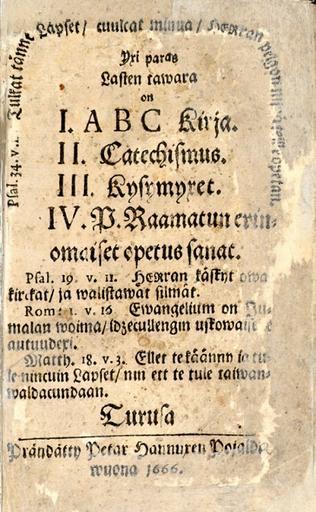 Psal. 34. v. 12. Tulkat tänne Lapset/ cuulcat minua/ HERran pelgon minä teille opetan.
Yxi paras
Lasten tawara
on
I. A B C Kirja.
II. Catechismus.
III. Kysymyxet.
IV. P. Raamatun erin-
omaiset opetus sanat.
Psal. 19. v. 11. HERran käskyt owa
kirckat/ ja walistawat silmät.
Rom: 1. v. 16 Ewangelium on Ju-
malan woima/ idzecullengin uskowaise
autuudexi.
Matth. 18. v. 3. Ellet te käänny ja tu-
le nincuin Lapset/ nin ett te tule taiwan-
waldacundaan.
Turusa
Prändätty Petar Hannuxen Pojalda
wuona 1666.